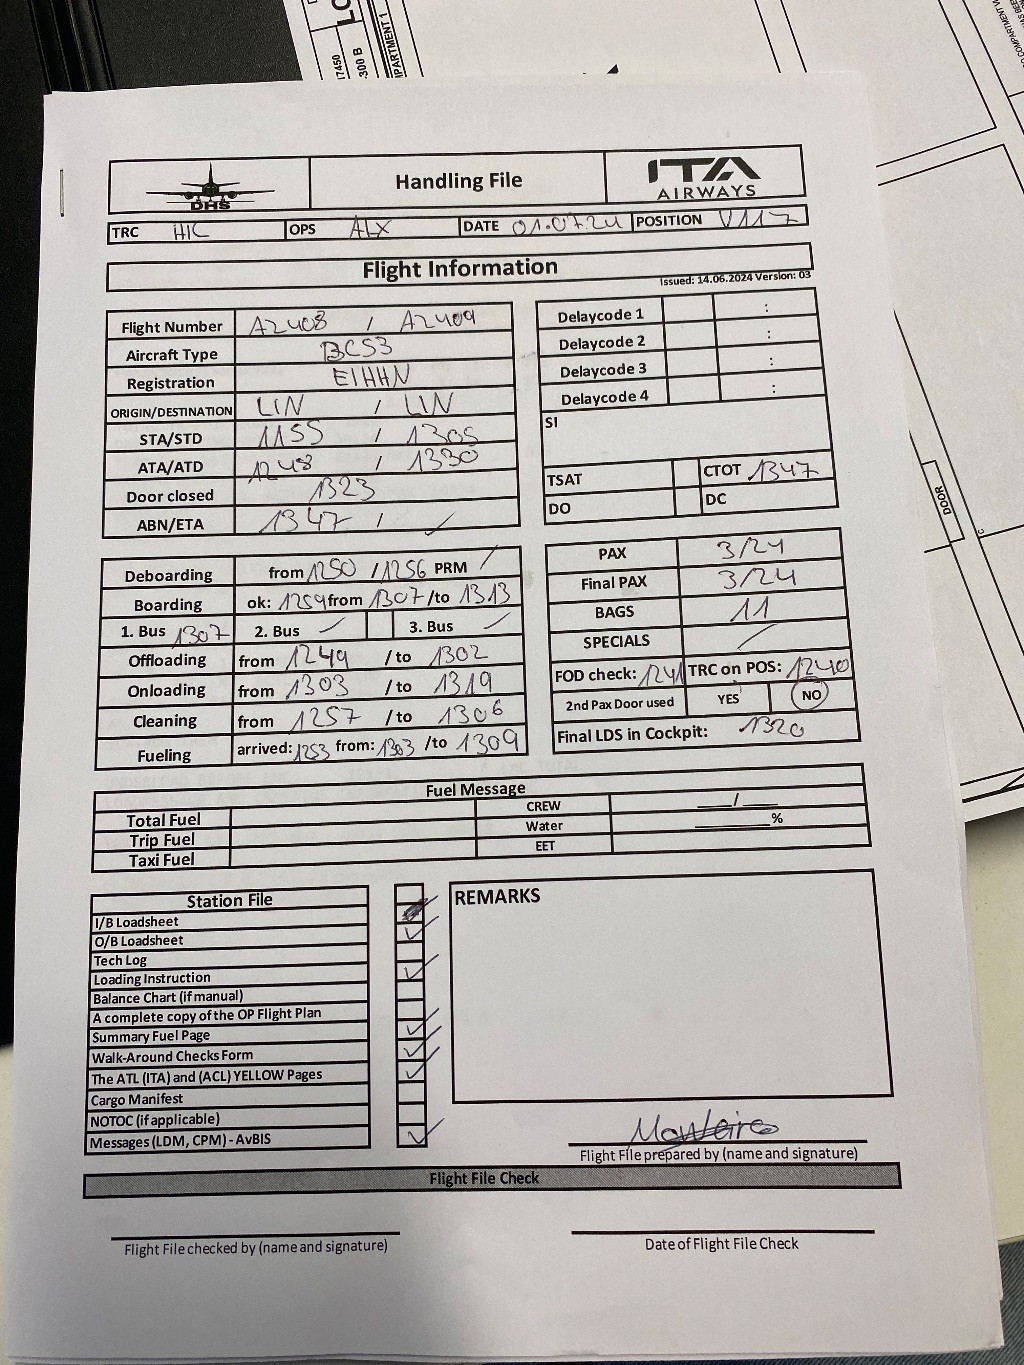 LO
17450
300 B
MPARTMENT 1
DHS
Handling File
ITA
AIRWAYS
TRC HIC OPS ALX DATE 01.07.24 POSITION V117
Flight Information
Issued: 14.06.2024 Version: 03
Flight Number AZ408 / AZ409
Aircraft Type BCS3
Registration EIHHN
ORIGIN/DESTINATION LIN / LIN
STA/STD 1155 / 1305
ATA/ATD 1248 / 1330
Door closed 1323
ABN/ETA 1347 /
Delaycode 1 :
Delaycode 2 :
Delaycode 3 :
Delaycode 4 :
SI
TSAT CTOT 1347
DO DC
Deboarding from 1250 / 1256 PRM /
Boarding ok: 1259 from 1307 /to 1313
1. Bus 1307 2. Bus 3. Bus
Offloading from 1249 /to 1302
Onloading from 1303 /to 1319
Cleaning from 1257 /to 1306
Fueling arrived: 1253 from: 1303 /to 1309
PAX 3/24
Final PAX 3/24
BAGS 11
SPECIALS /
FOD check: 1241 TRC on POS: 1240
2nd Pax Door used YES NO
Final LDS in Cockpit: 1320
Fuel Message
Total Fuel CREW ___/___
Trip Fuel Water ______%
Taxi Fuel EET
Station File
I/B Loadsheet
O/B Loadsheet
Tech Log
Loading Instruction
Balance Chart (if manual)
A complete copy of the OP Flight Plan
Summary Fuel Page
Walk-Around Checks Form
The ATL (ITA) and (ACL) YELLOW Pages
Cargo Manifest
NOTOC (if applicable)
Messages (LDM, CPM) - AvBIS
REMARKS
Flight File prepared by (name and signature)
Flight File Check
Flight File checked by (name and signature)
Date of Flight File Check
DOOR